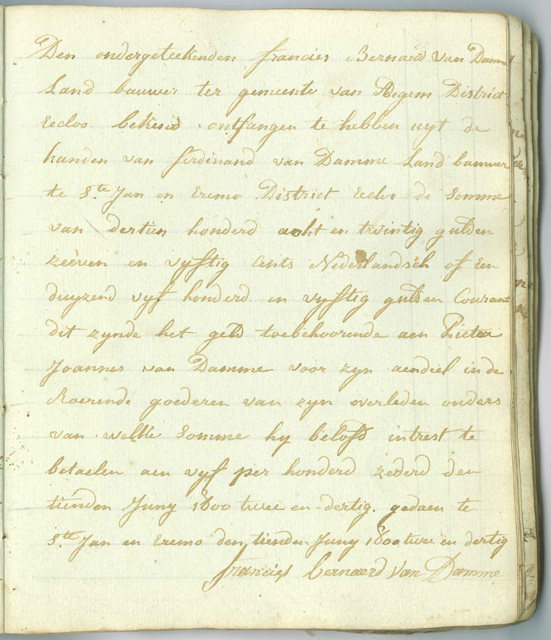 Den ondergeteekenden francies Bernard van Damme
Land bauwer ter gemeente van Rogem District
Eecloo bekend ontfangen te hebben uyt de
handen van ferdinand van Damme Land bauwer
te Ste Jan en Eremo District Eecloo de Somme
van dertien honderd acht en twintig gulden
zeeven en vyftig Cents Nederlandsch of Een
duyzend vyf honderd en vyftig gulden Courant
dit zynde het geld toebehoorende aen Pieter
Joannes van Damme voor zyn aendeel in de
Roerende goederen van zyn overleden onders
van welke Somme hy beloft intrest te
betaelen aen vyf per honderd zederd den
tienden Juny 1800 twee en dertig gedaen te
Ste Jan en Eremo den tienden Juny 1800 twee en dertig
francies bernaerd van Damme